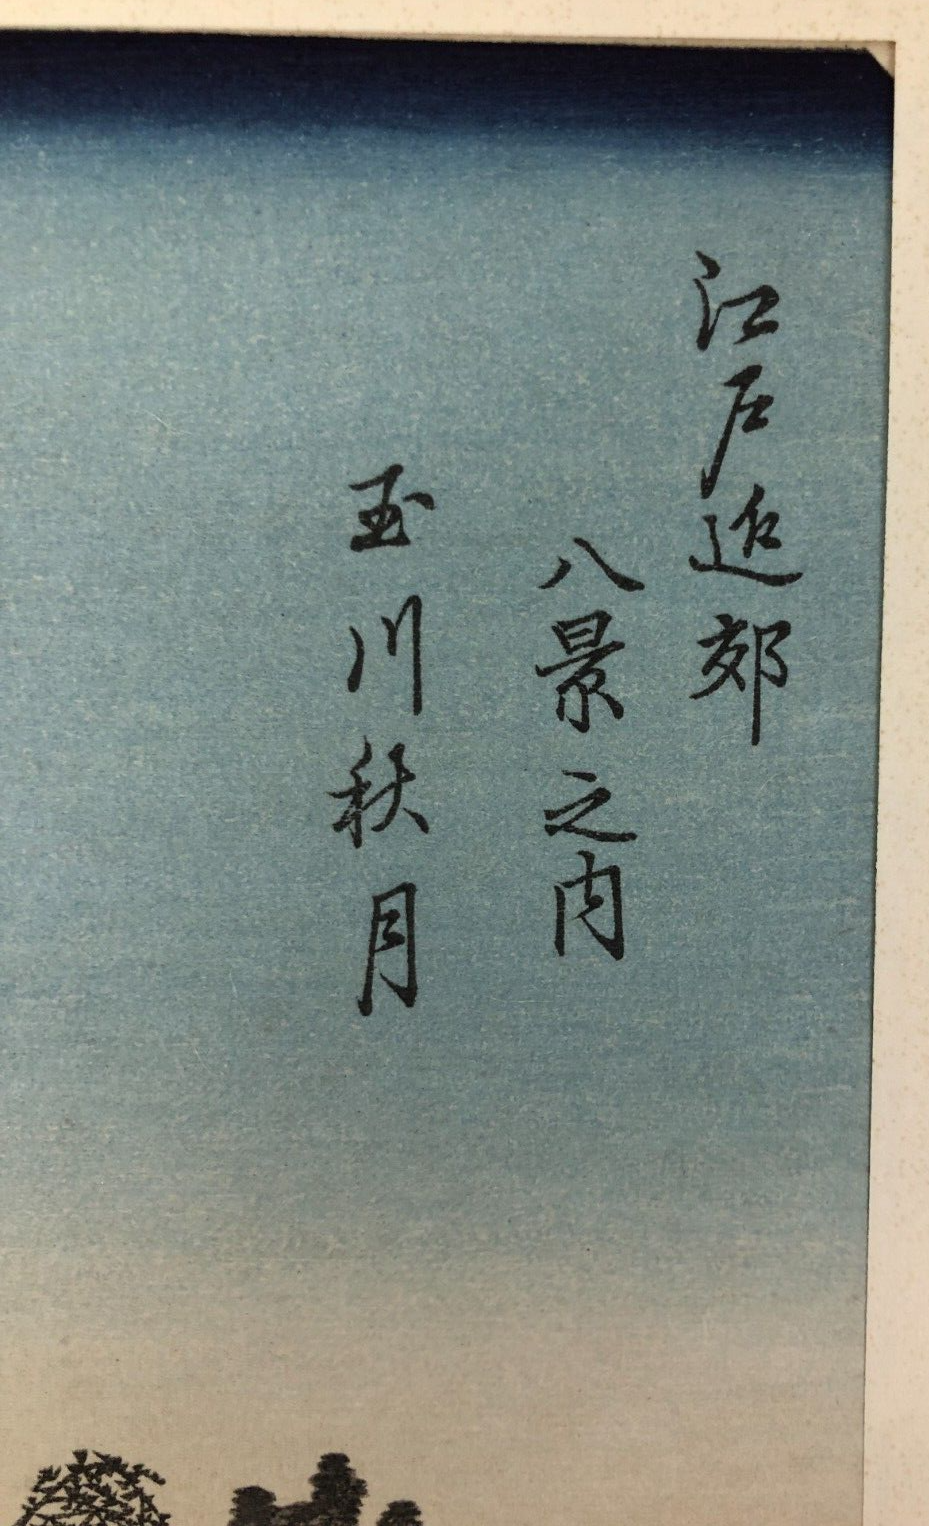 江戸近郊
八景之内
玉川秋月